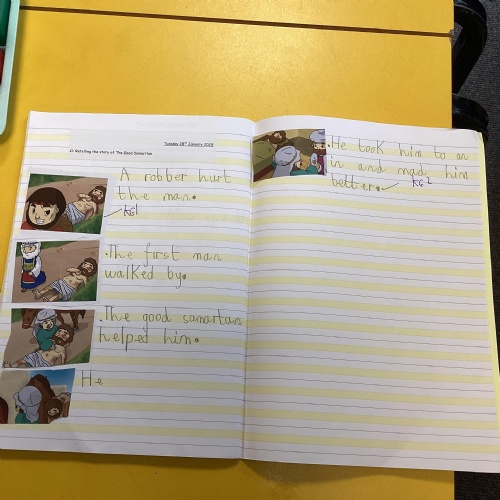 Tuesday 28th January 2025
LI: Retelling the story of The Good Samaritan
A robber hurt
the man.
KS1
.The first man
walked by.
.The good samartan
helped him.
He
.He took him to an
in and mad him
better.
KS2